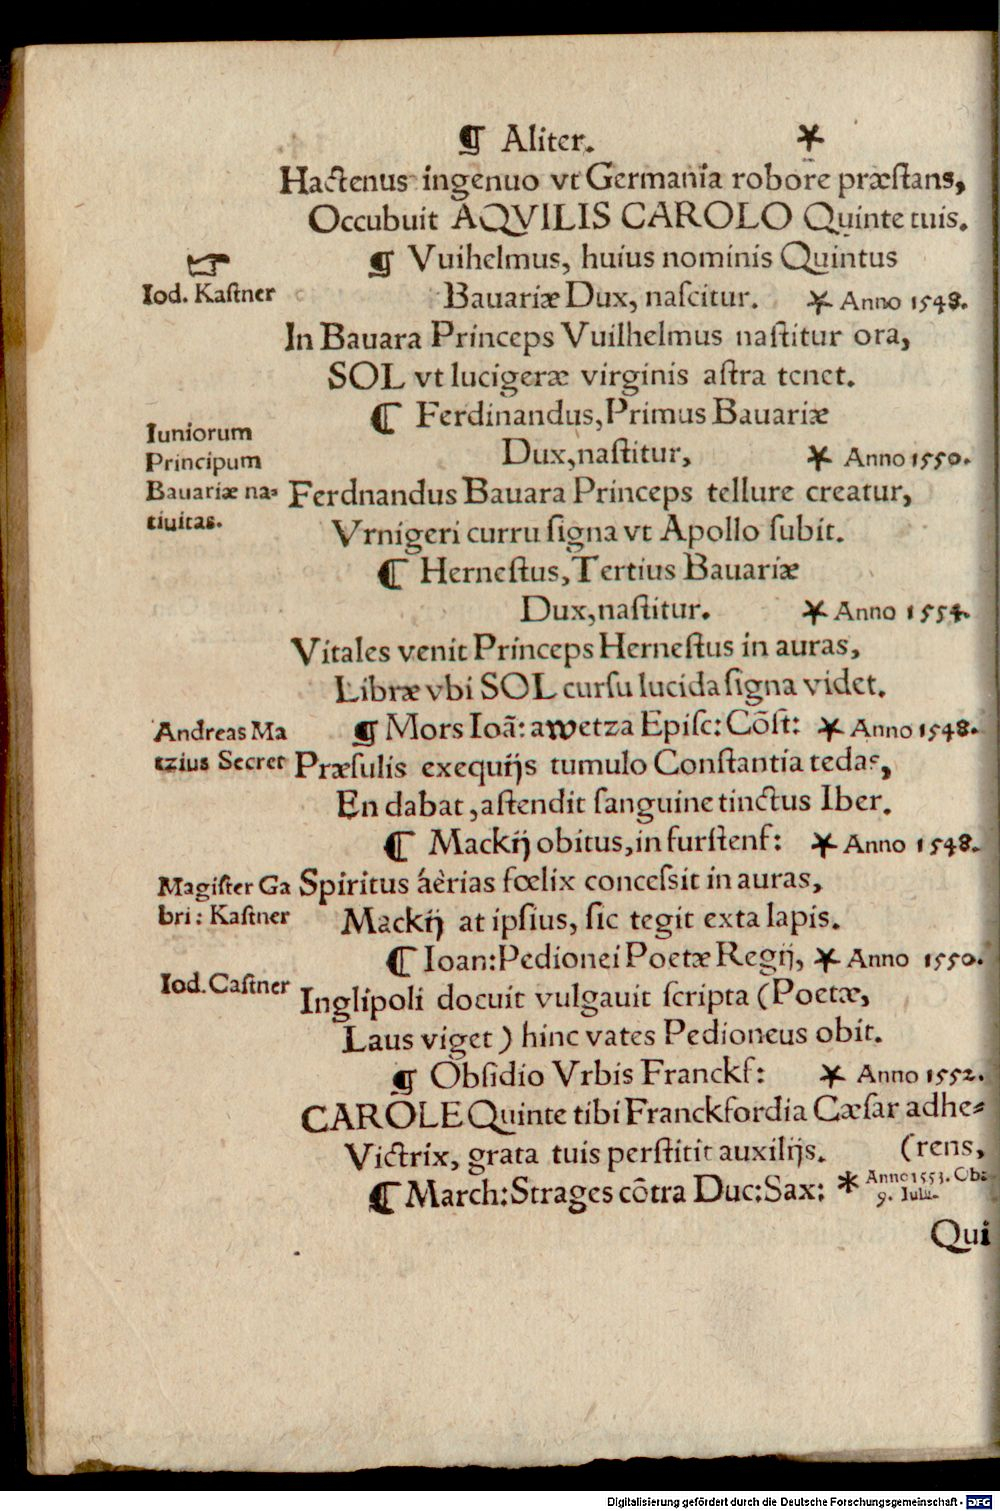 ¶ Aliter. *
Hactenus ingenuo vt Germania robore præstans,
Occubuit AQVILIS CAROLO Quinte tuis.
¶ Vuihelmus, huius nominis Quintus
☞
Iod. Kastner
Bauariæ Dux, nascitur. * Anno 1548.
In Bauara Princeps Vuilhelmus nastitur ora,
SOL vt lucigeræ virginis astra tenet.
¶ Ferdinandus, Primus Bauariæ
Iuniorum
Principum
Bauariæ na⸗
tiuitas.
Dux, nastitur, * Anno 1550.
Ferdnandus Bauara Princeps tellure creatur,
Vrnigeri curru signa vt Apollo subit.
¶ Hernestus, Tertius Bauariæ
Dux, nastitur. * Anno 1554.
Vitales venit Princeps Hernestus in auras,
Libræ vbi SOL cursu lucida signa videt.
Andreas Ma
tzius Secret
¶ Mors Ioã: awetza Episc: Cõst: * Anno 1548.
Præsulis exequijs tumulo Constantia tedas,
En dabat, astendit sanguine tinctus Iber.
¶ Mackij obitus, in furstenf: * Anno 1548.
Magister Ga
bri: Kastner
Spiritus áèrias fœlix concessit in auras,
Mackij at ipsius, sic tegit exta lapis.
¶ Ioan: Pedionei Poetæ Regij, * Anno 1550.
Iod. Castner
Inglipoli docuit vulgauit scripta (Poetæ,
Laus viget) hinc vates Pedioneus obit.
¶ Obsidio Vrbis Franckf: * Anno 1552.
CAROLE Quinte tibi Franckfordia Cæsar adhe⸗
Victrix, grata tuis perstitit auxilijs. (rens,
¶ March: Strages cõtra Duc: Sax: * Anno 1553. Ob:
9. Iulii.
Qui
Digitalisierung gefördert durch die Deutsche Forschungsgemeinschaft - DFG